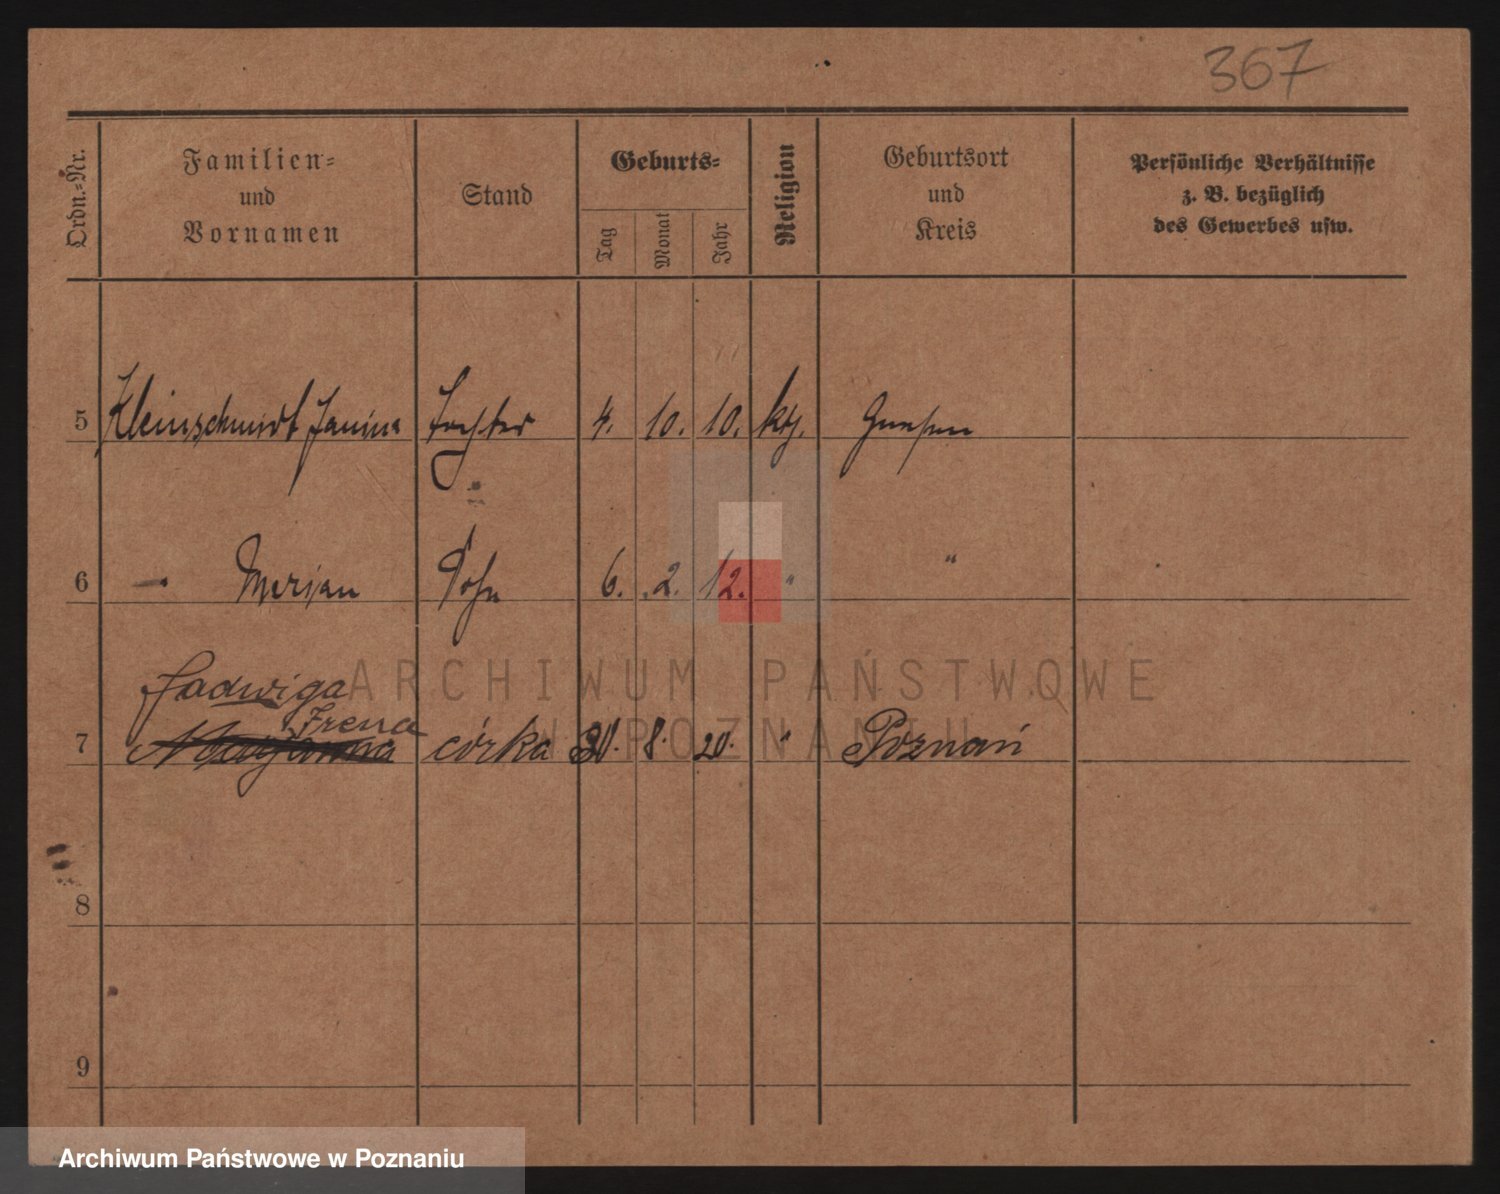 367
Ordn.-Nr.
Familien-
und
Vornamen
Stand
Geburts-
Tag
Monat
Jahr
Religion
Geburtsort
und
Kreis
Persönliche Verhältnisse
z. B. bezüglich
des Gewerbes usw.
5 Kleinschmidt Janina Tochter 4. 10. 10. kth. Gnesen
6 — Merjan Sohn 6. 2. 12. " "
Jadwiga
Irena
7 Maryanna córka 8. 20. " Poznań
8
9
ARCHIWUM PAŃSTWOWE
W POZNANIU
Archiwum Państwowe w Poznaniu